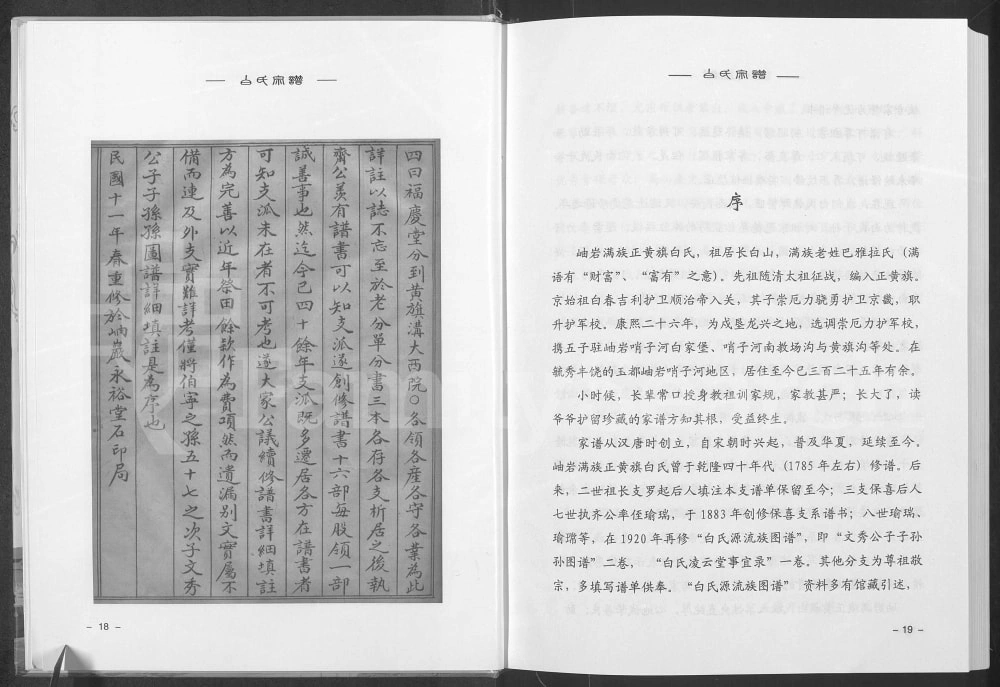 白氏宗譜
四曰福慶堂分到黄旗溝大西院○各領各産各守各業為此
詳註以誌不忘至於老分單分書三本各存各支析居之後執
齊公羙有譜書可以知支派遂創修譜書十六部每股領一部
誠善事也然迄今已四十餘年支派既多遷居各方在譜書者
可知支派未在者不可考也遂大家公議續修譜書詳細填註
方為完善以近年祭田餘欵作為費項然而遺漏别文實属不
備而連及外支實難詳考僅將伯寕之孫五十七之次子文秀
公子子孫孫圖譜詳細填註是為序也
民國十一年春重修於岫巖永裕堂石印局
- 18 -
白氏宗譜
序
岫岩满族正黄旗白氏，祖居长白山，满族老姓巴雅拉氏（满
语有“财富”、“富有”之意）。先祖随清太祖征战，编入正黄旗。
京始祖白春吉利护卫顺治帝入关，其子崇厄力骁勇护卫京畿，职
升护军校。康熙二十六年，为戍垦龙兴之地，选调崇厄力护军校，
携五子驻岫岩哨子河白家堡、哨子河南教场沟与黄旗沟等处。在
毓秀丰饶的玉都岫岩哨子河地区，居住至今已三百二十五年有余。
小时候，长辈常口授身教祖训家规，家教甚严；长大了，读
爷爷护留珍藏的家谱方知其根，受益终生。
家谱从汉唐时创立，自宋朝时兴起，普及华夏，延续至今。
岫岩满族正黄旗白氏曾于乾隆四十年代（1785 年左右）修谱。后
来，二世祖长支罗起后人填注本支谱单保留至今；三支保喜后人
七世执齐公率侄瑜瑞，于 1883 年创修保喜支系谱书；八世瑜瑞、
瑜瑺等，在 1920 年再修“白氏源流族图谱”，即“文秀公子子孙
孙图谱”二卷，“白氏凌云堂事宜录”一卷。其他分支为尊祖敬
宗，多填写谱单供奉。“白氏源流族图谱”资料多有馆藏引述，
- 19 -